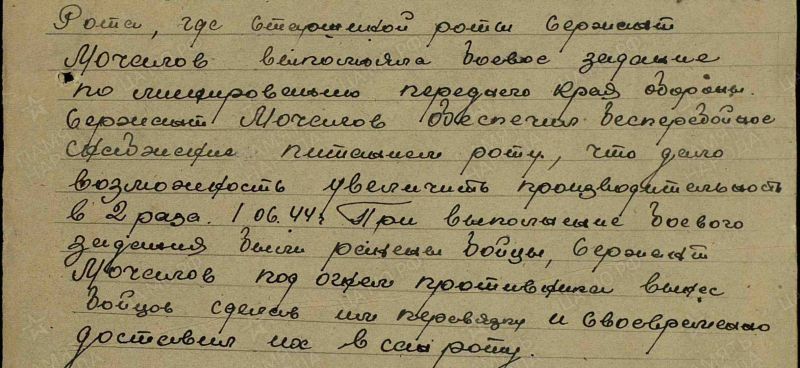 Рота, где старшиной роты сержант
Мочалов выполняла боевое задание
по минированию переднего края обороны.
Сержант Мочалов обеспечил бесперебойное
снабжение питанием роту, что дало
возможность увеличить производительность
в 2 раза. 1.06.44г. При выполнение боевого
задания были ранены бойцы, Сержант
Мочалов под огнем противника вынес
бойцов сделав им перевязку и своевременно
доставил их в санроту.